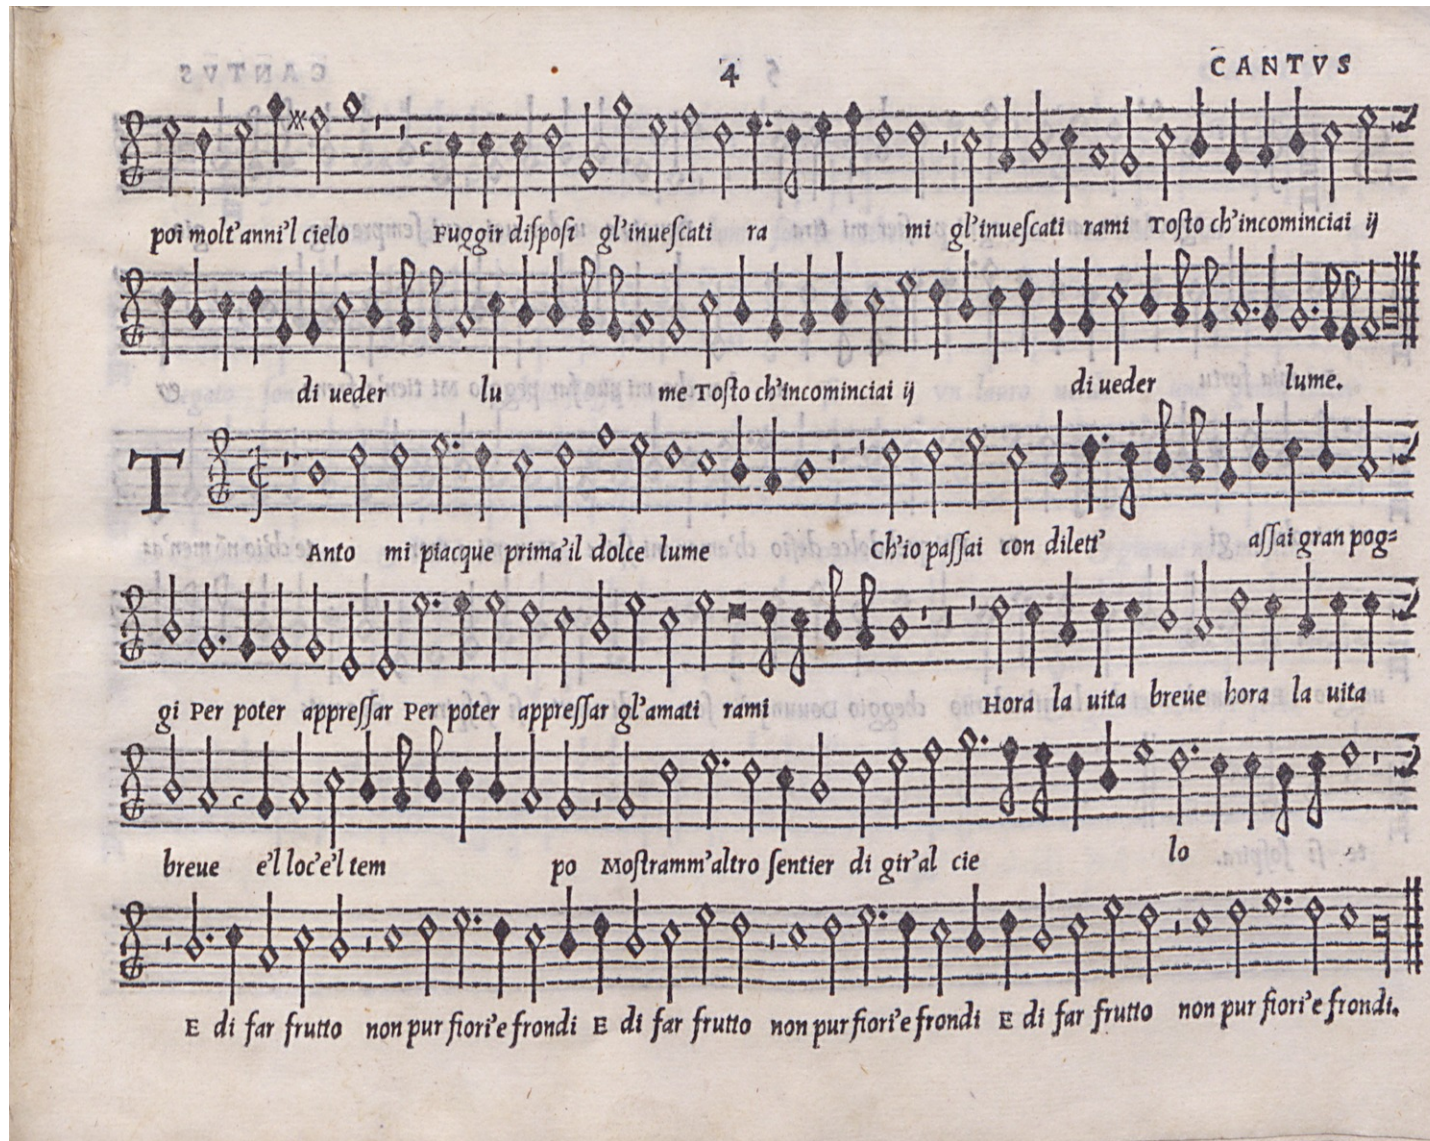 4 CANTVS
poi molt'anni'l cielo Fuggir diſpoſi gl'inueſcati ra mi gl'inueſcati rami Toſto ch'incominciai ij
di ueder lu me Toſto ch'incominciai ij di ueder lume.
T Anto mi piacque prima'il dolce lume Ch'io paſſai con dilett' aſſai gran pog=
gi Per poter appreſſar Per poter appreſſar gl'amati rami Hora la uita breue hora la uita
breue e'l loc'e'l tem po Moſtramm'altro ſentier di gir'al cie lo
E di far frutto non pur fiori'e frondi E di far frutto non pur fiori'e frondi E di far frutto non pur fiori'e frondi.